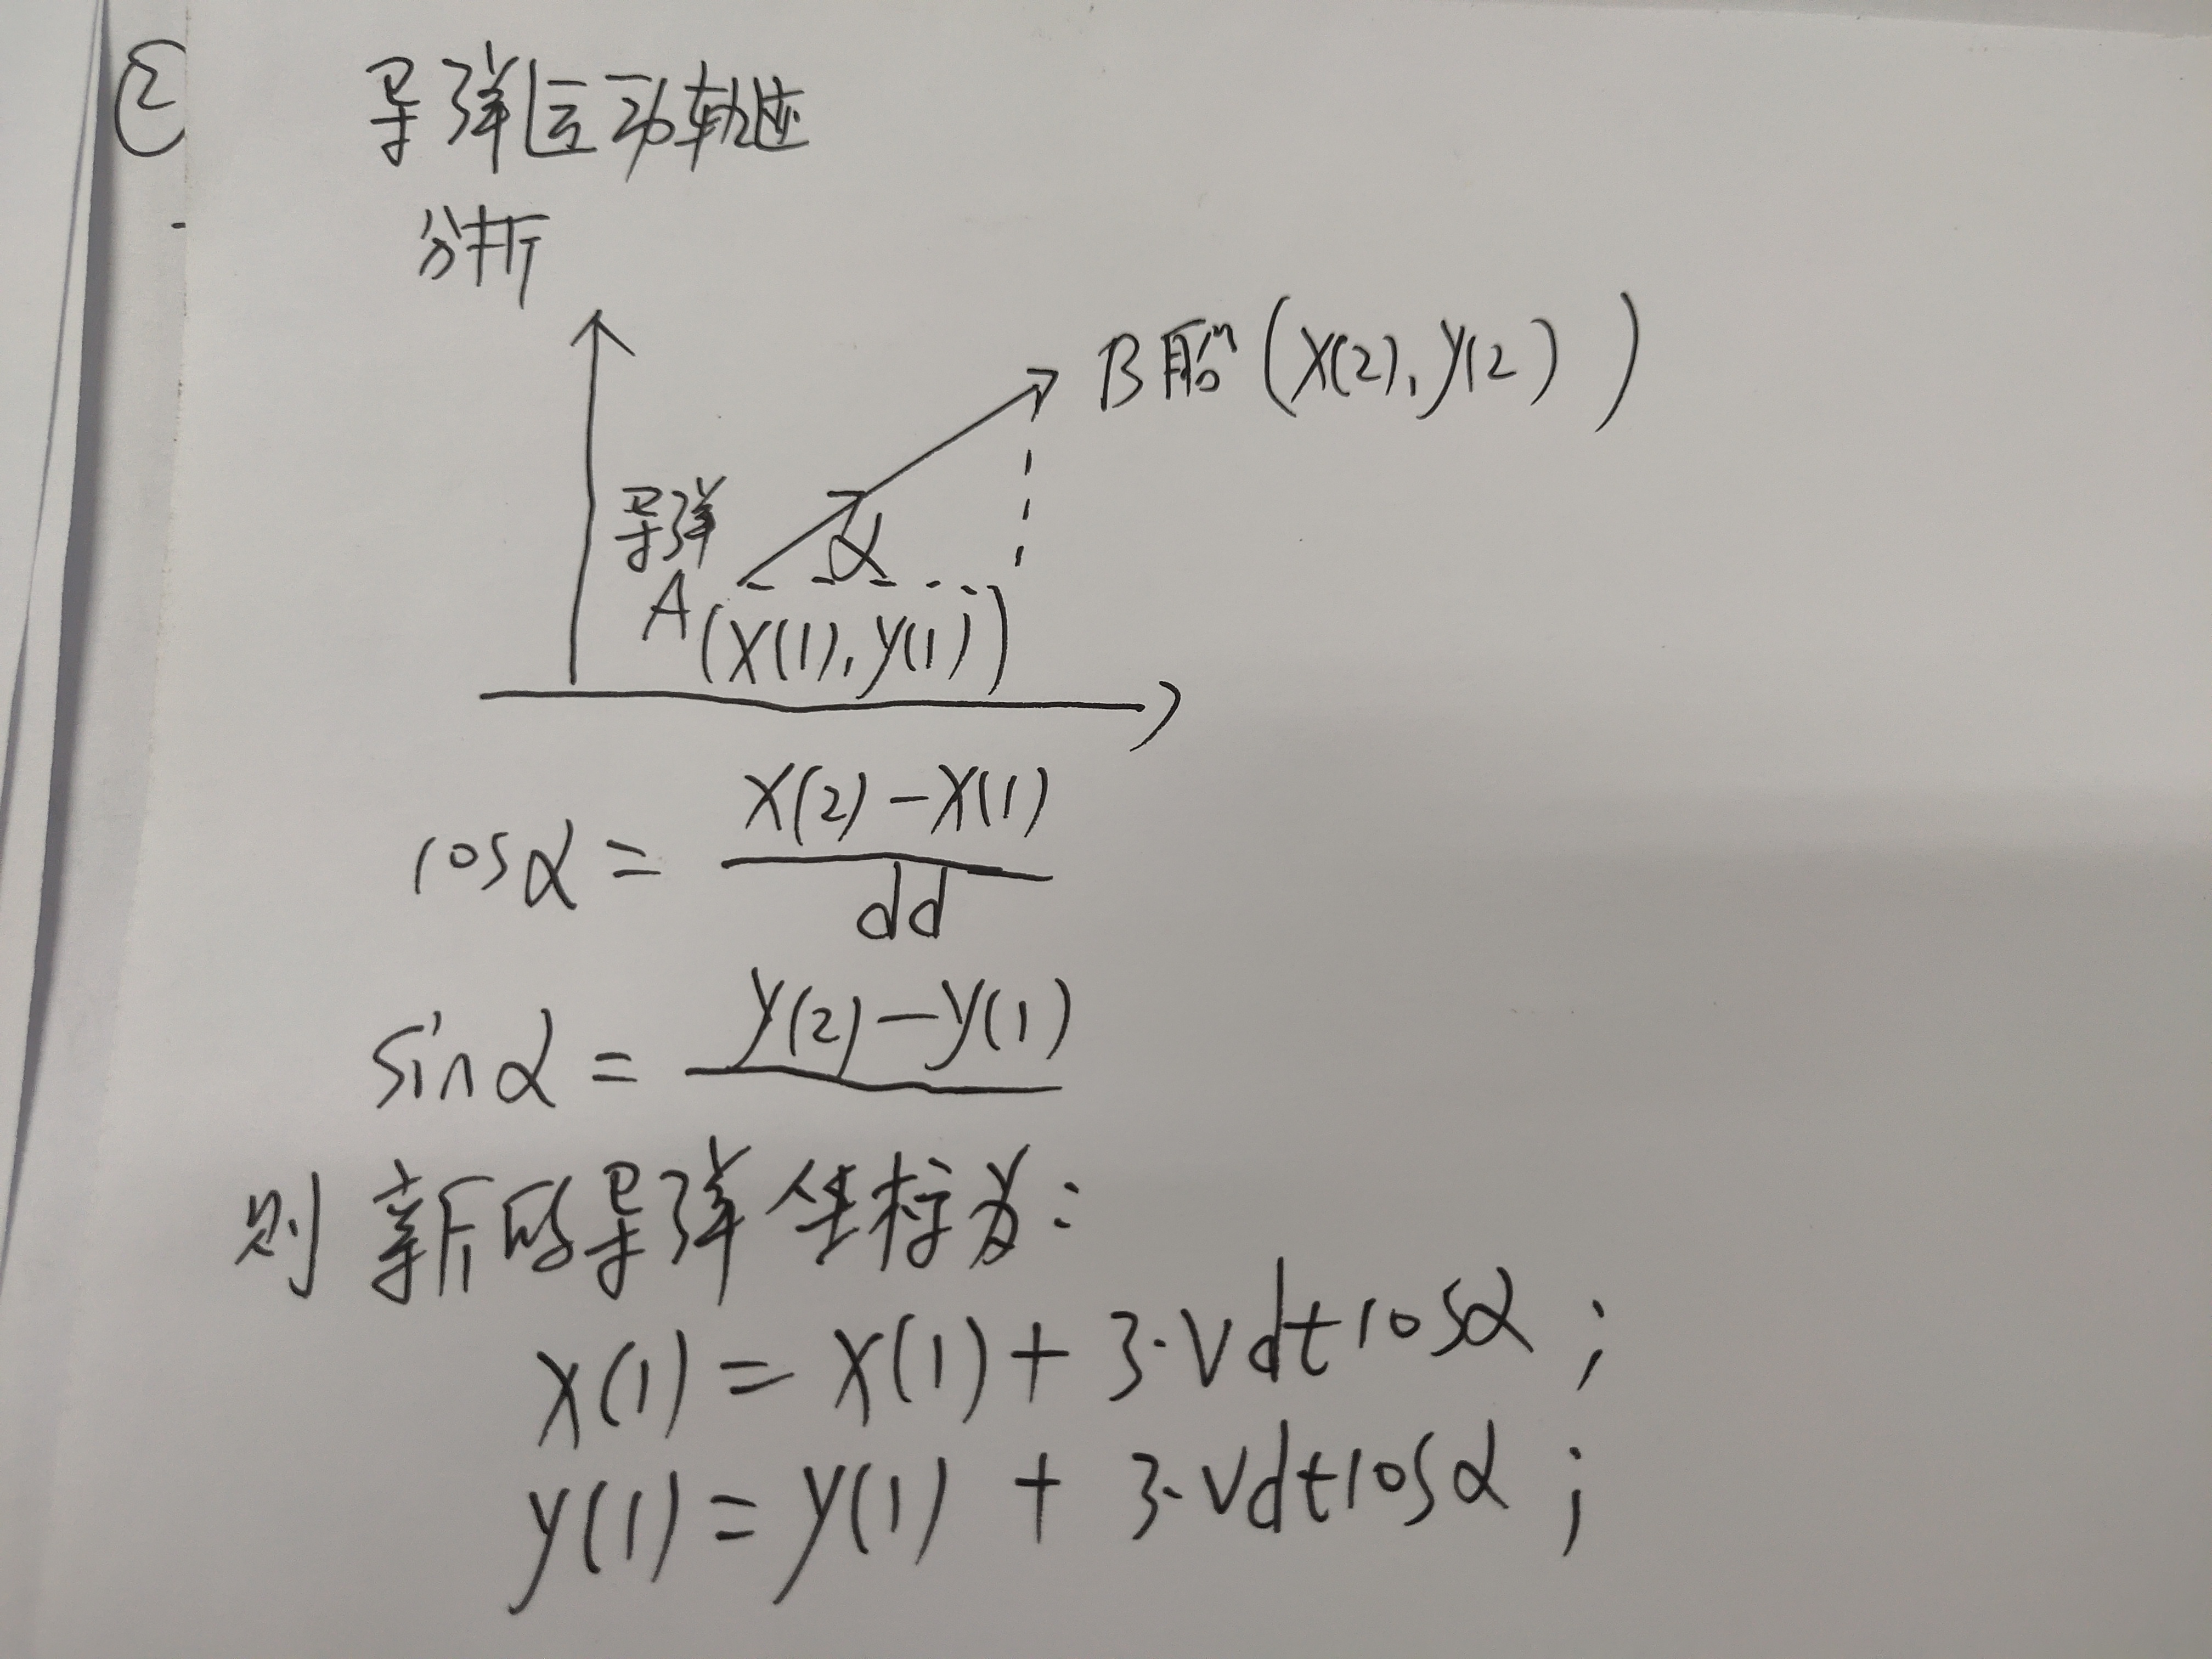 ②
导弹运动轨迹
分析
B船(X(2),y(2))
导弹
α
A(X(1),y(1))
cosα = X(2)-X(1)
dd
sinα = y(2)-y(1)
则新的导弹坐标为:
X(1) = X(1) + 3·Vdtcosα;
y(1) = y(1) + 3·Vdtcosα;